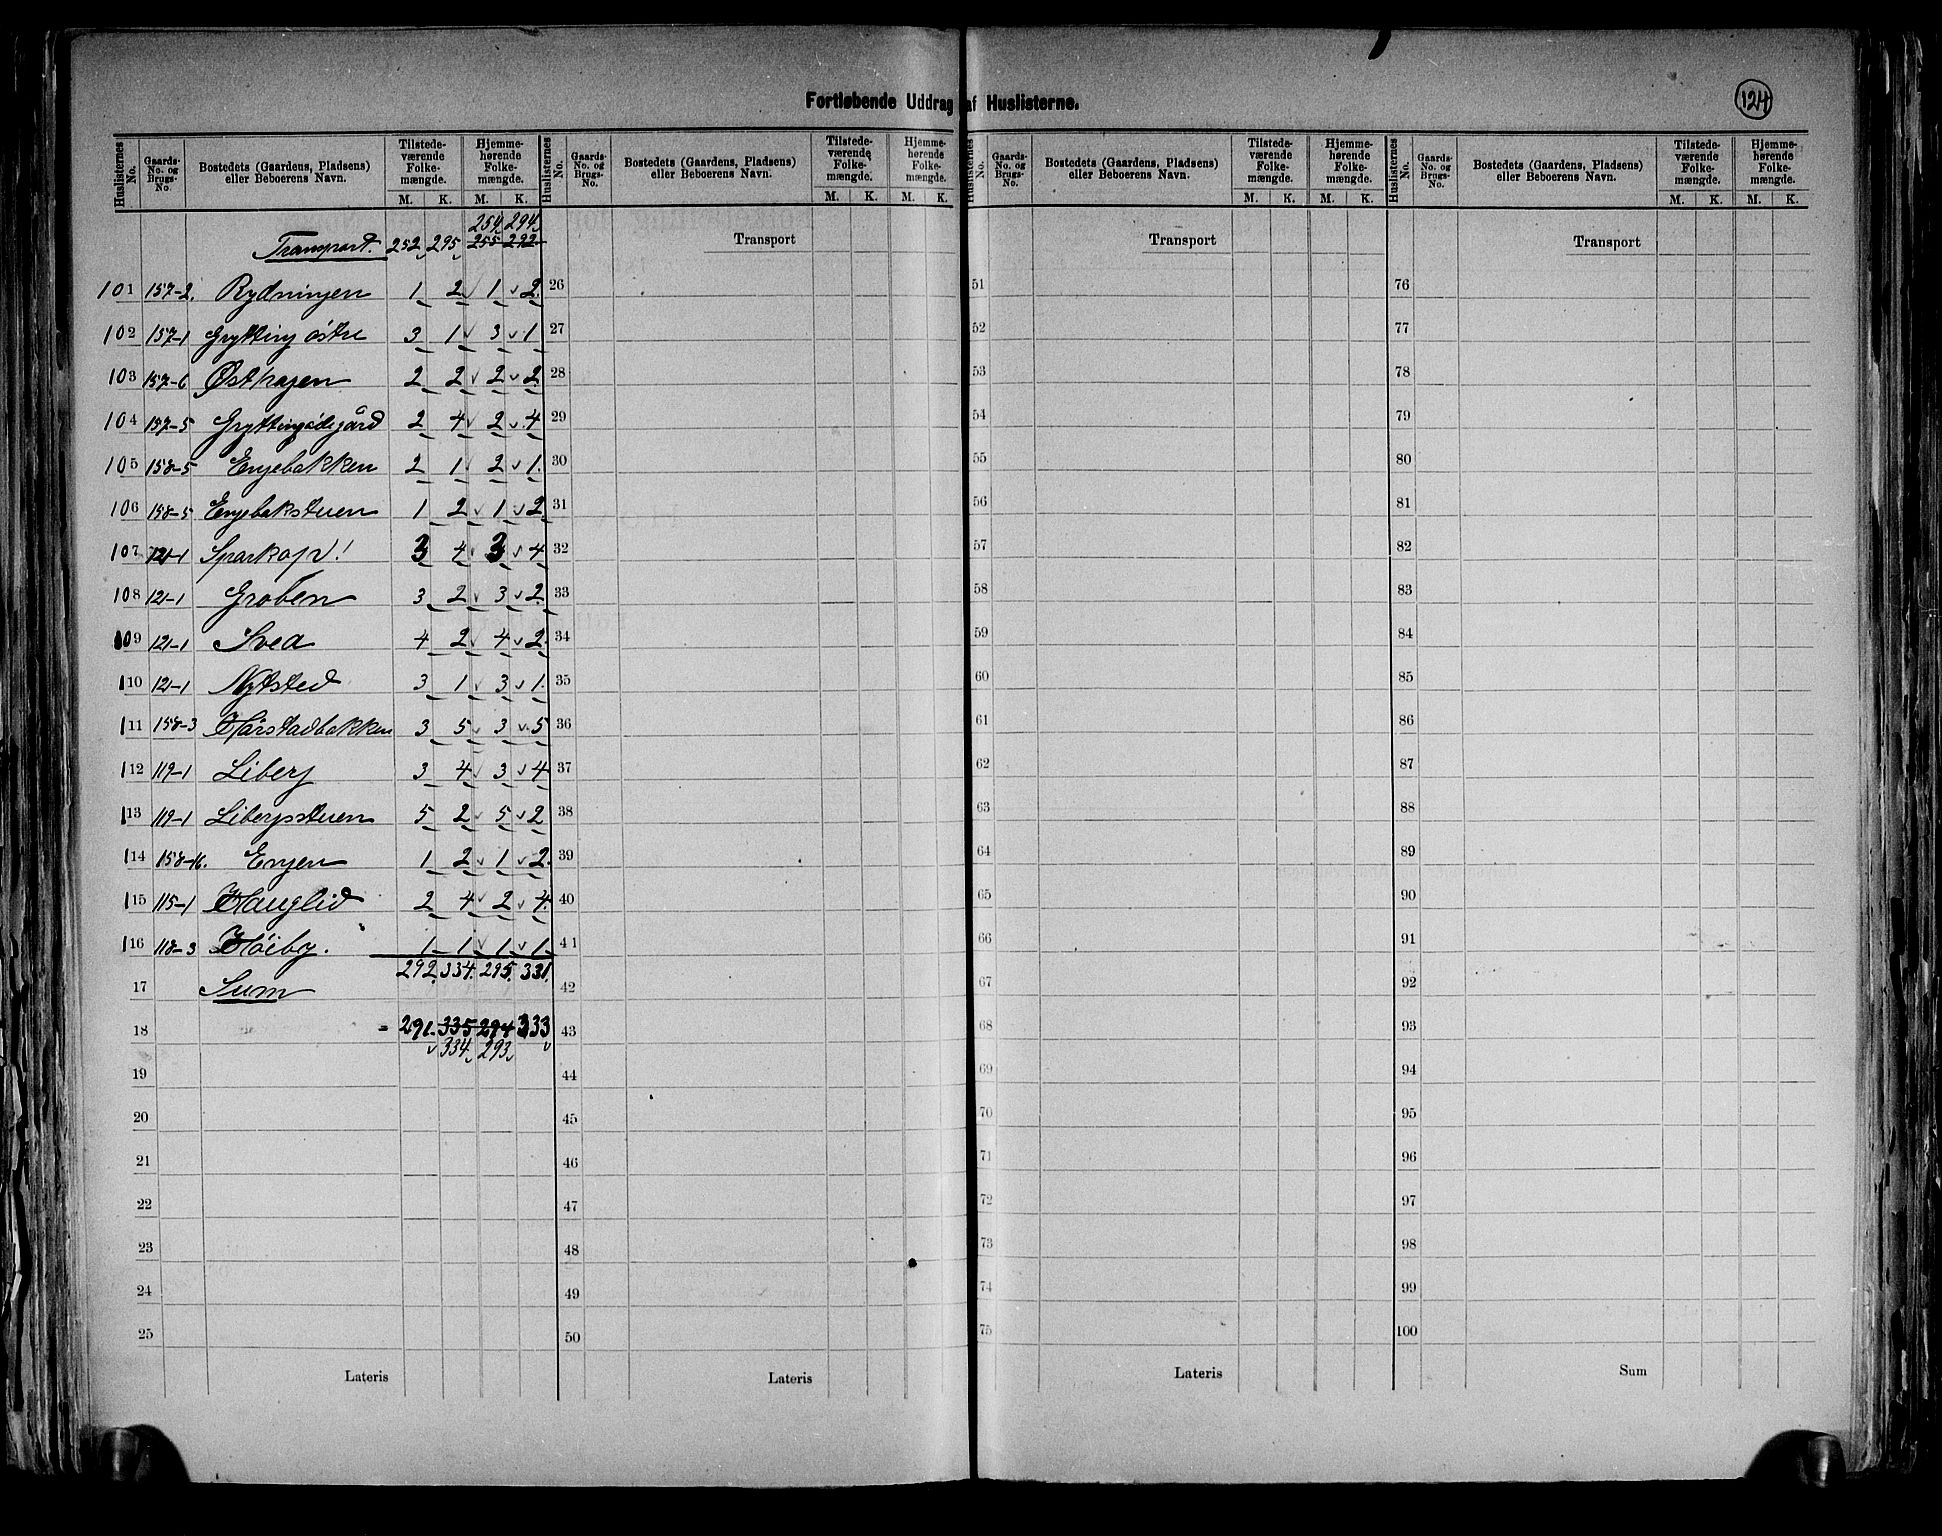 Fortløbende Uddrag af Huslisterne.
124
Huslisternes No. Gaards-No. og Brugs-No. Bostedets (Gaardens, Pladsens) eller Beboerens Navn. Tilstede-værende Folke-mængde. Hjemme-hørende Folke-mængde. M. K. M. K.
254 294
Transport. 252 295 255 292
101 157-2. Rydningen 1 2 1 2
102 157-1 Grytting østre 3 1 3 1
103 157-6 Østhagen 2 2 2 2
104 157-5 Gryttingødegård 2 4 2 4
105 158-5 Engebakken 2 1 2 1
106 158-5 Engebakstuen 1 2 1 2
107 121-1 3 4 3 4
108 121-1 Groben 3 2 3 2
109 121-1 Svea 4 2 4 2
110 121-1 Nytsted 3 1 3 1
111 158-3 Hårstadbakken 3 5 3 5
112 119-1 Liberg 3 4 3 4
113 119-1 Libergsstuen 5 2 5 2
114 158-16. Engen 1 2 1 2
115 115-1 Hauglid 2 4 2 4
116 118-3 Høiby. 1 1 1 1
292 334 295 331
17 Sum
18 = 291 335 294 333
334 293
19
20
21
22
23
24
25
Lateris
Huslisternes No. Gaards-No. og Brugs-No. Bostedets (Gaardens, Pladsens) eller Beboerens Navn. Tilstede-værende Folke-mængde. Hjemme-hørende Folke-mængde. M. K. M. K.
Transport
26
27
28
29
30
31
32
33
34
35
36
37
38
39
40
41
42
43
44
45
46
47
48
49
50
Lateris
Huslisternes No. Gaards-No. og Brugs-No. Bostedets (Gaardens, Pladsens) eller Beboerens Navn. Tilstede-værende Folke-mængde. Hjemme-hørende Folke-mængde. M. K. M. K.
Transport
51
52
53
54
55
56
57
58
59
60
61
62
63
64
65
66
67
68
69
70
71
72
73
74
75
Lateris
Huslisternes No. Gaards-No. og Brugs-No. Bostedets (Gaardens, Pladsens) eller Beboerens Navn. Tilstede-værende Folke-mængde. Hjemme-hørende Folke-mængde. M. K. M. K.
Transport
76
77
78
79
80
81
82
83
84
85
86
87
88
89
90
91
92
93
94
95
96
97
98
99
100
Sum